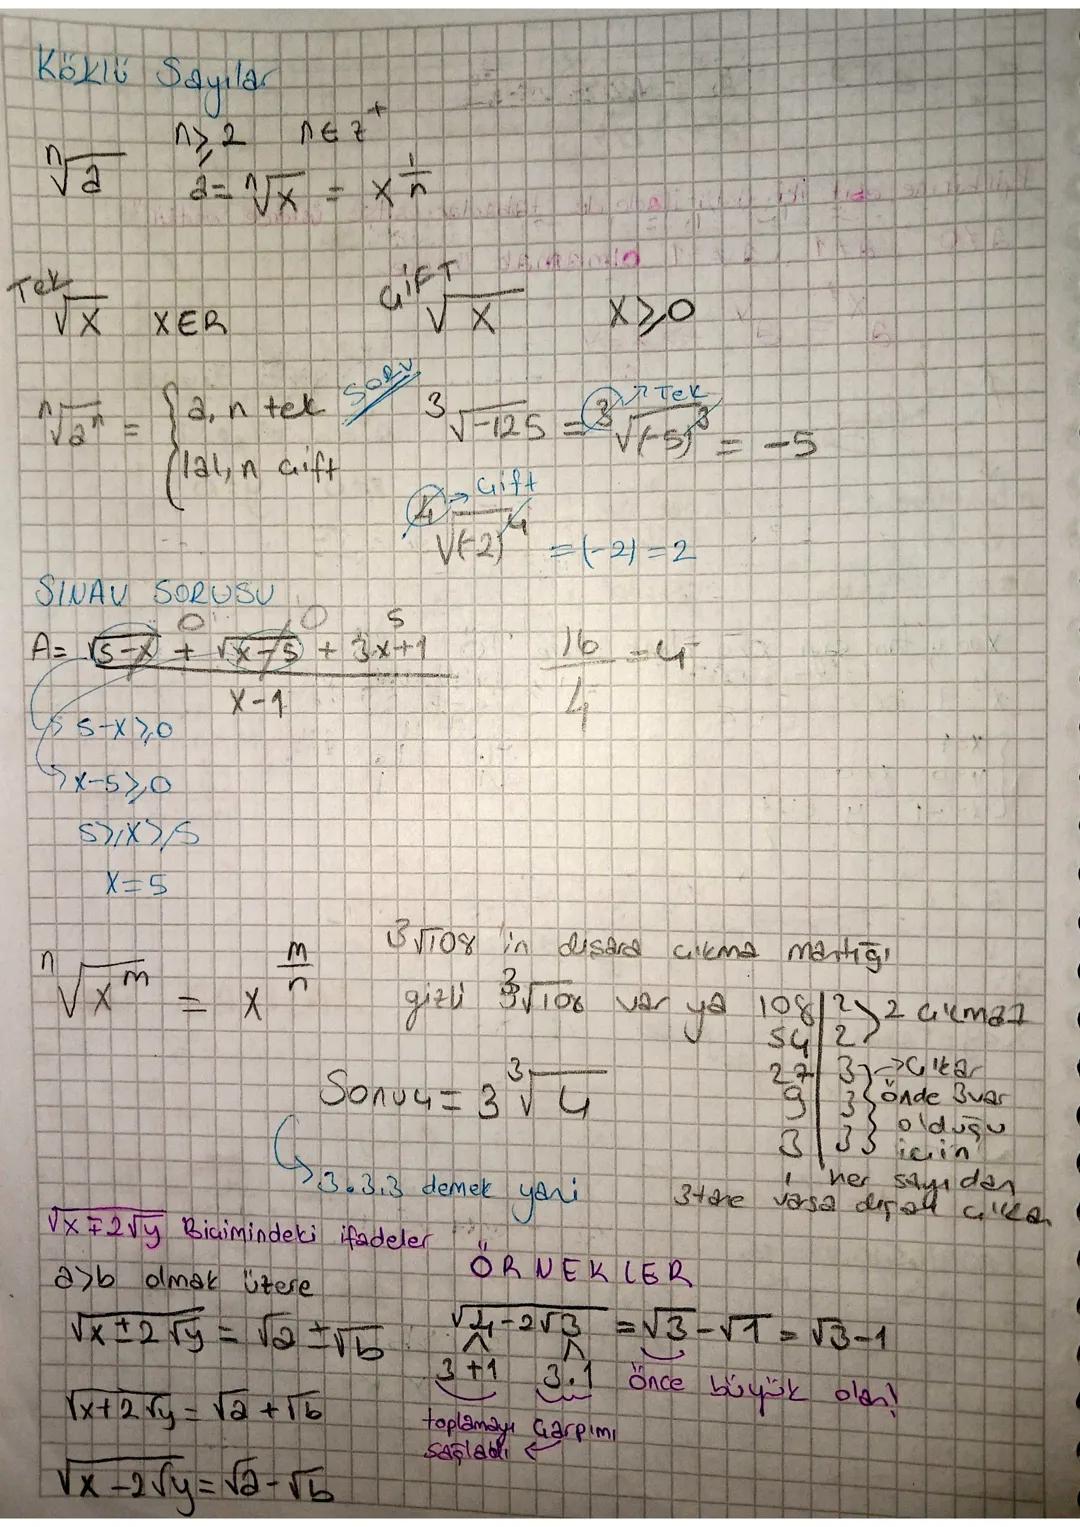 Köklü Sayılar
n≥2 n∈z⁺
ⁿ√a a=ⁿ√x = x^(1/n)
Tek√x XER
ÇİFT√x x≥0
ⁿ√aⁿ = { a, n tek
|a|, n çift
SORU
³√-125 = ³√(-5)³ = -5
→ Tek
4 → çift
⁴√(-2)⁴ =|-2|=2
SINAV SORUSU
0 0 5
A= (√5-x + √x-5 + 3x+1)/(x-1) 16/4 =4
5-x≥0
x-5≥0
5≥x≥5
x=5
ⁿ√x^m = x^(m/n)
3√108 'in dısara cıkma mantığı
gizli ³√108 var ya
108|2
54|2
27|3
9|3
3|3
1
2 cıkmaz
→Cıkar
önde 3var
olduğu
için
her sayıdan
3tane varsa dışarı çıkar
Sonuç= 3 ³√4
→3.3.3 demek yani
√x∓2√y Biçimindeki ifadeler
a>b olmak üzere
√x±2√y = √a ±√b
√x+2√y = √a +√b
√x-2√y = √a-√b
ÖRNEKLER
√4-2√3 =√3-√1 = √3-1
3+1 3.1 önce büyük olan!
toplamayı çarpımı
sağladı ←